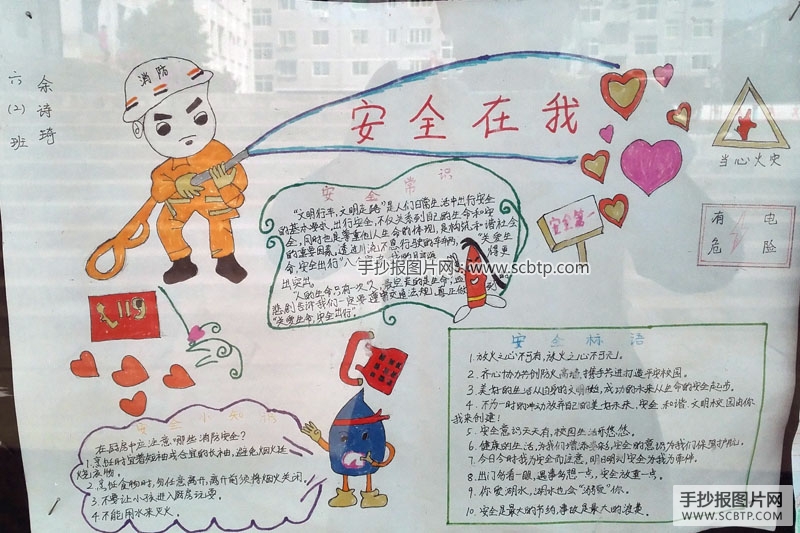 六(2)班
余诗琦
消防
安全在我
当心火灾
有电
危险
安全第一
安全常识
"文明行车,文明走路"是人们日常生活中出行安全
的基本要求。出行安全,不仅关系到自己的生命和安
全,同时也是尊重他人生命的体现,是构筑和谐社会
的重要因素。
手抄报图片网 www.scbtp.com
出突出。
"关爱生命,安全出行"
119
安全小知识
在厨房中应注意哪些消防安全?
1.烹饪时宜着短袖或合宜的长袖,避免烟火延
烧衣物。
2.烹饪食物时,勿任意离开,离开前须将烟火关闭。
3.不要让小孩进入厨房玩耍。
4.不能用水来灭火。
安全标语
1.放火之心不可有,放火之心不可无。
2.齐心协力共创防火高墙,携手共进打造平安校园。
3.美好的生活从自身的文明做起,成功的未来从生命的安全起步。
4.不为一时的冲动放弃自己的美好未来,安全、和谐、文明校园由你
我来创建!
5.安全意识天天有,校园生活乐悠悠。
6.健康的生活,为我们增添多彩,安全的意识为我们保驾护航。
7.今日今时我为安全而注意,明日明刻安全为我为事件。
8.出门勿看一眼,遇事勿想一点,安全放重一点。
9.你爱湖水,湖水也会"清爱"你。
10.安全是最大的节约,事故是最大的浪费。
手抄报图片网
WWW.SCBTP.COM